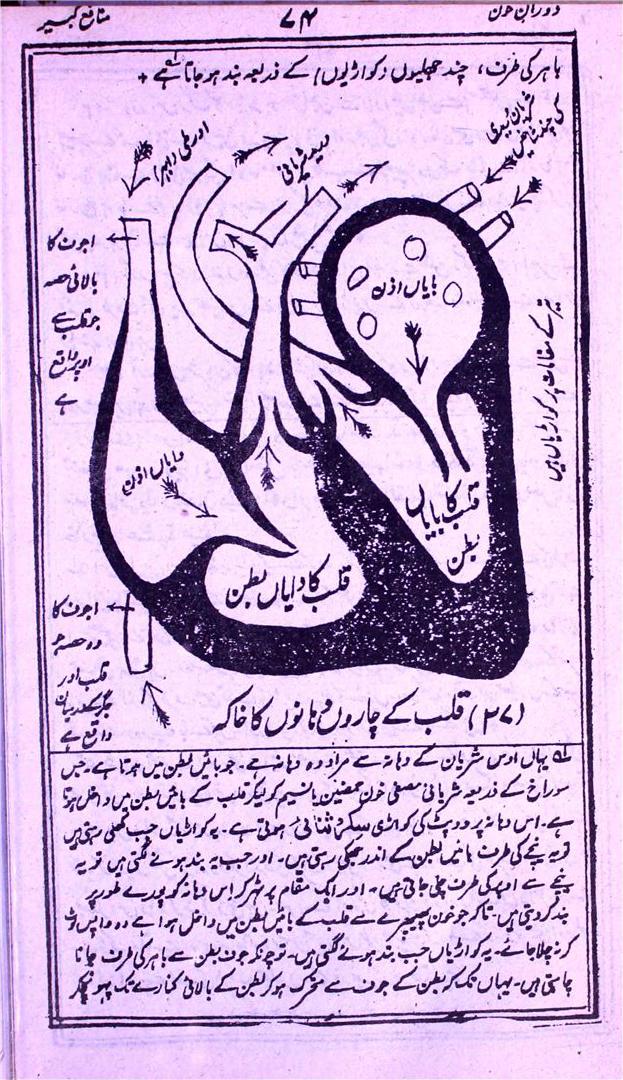 دوران خون
۷۴
منافع کبیر
باہر کی طرف، چند جھلیوں (کواڑیوں) کے ذریعہ بند ہوجاتا ہے +
اورطی (ابہر)
ورید شریانی
شریان وریدی
کی چند شاخیں
اجوف کا
بالائی حصہ
جو قلب سے
اوپر واقع
ہے
بایاں اذن
تیر کے مقامات پر کواڑیاں ہیں
دایاں اذن
قلب کا بایاں
بطن
قلب کا دایاں بطن
اجوف کا
وہ حصہ جو
قلب اور
جگر کے درمیان
واقع ہے
(۲۷) قلب کے چاروں دہانوں کا خاکہ
لہ یہاں اس شریان کے دہانہ سے مراد وہ دہانہ ہے۔ جو بائیں بطن میں ہوتا ہے۔ جس
سوراخ کے ذریعہ شریانی مصفی خون پھیپھڑوں یا نسیم کو لیکر قلب کے بائیں بطن میں داخل ہوتا
ہے۔ اس دہانہ پر دو پٹ کی کواڑی ہوتی ہے۔ یہ کواڑیاں جب کھلی رہتی ہیں
تو یہ نیچے کی طرف بائیں بطن کے اندر جھکی رہتی ہیں۔ اور جب یہ بند ہونے لگتی ہیں تو یہ
نیچے سے اوپر کی طرف چلی جاتی ہیں۔ اور ایک مقام پر ٹھہر کر اس دہانہ کو پورے طور پر
بند کردیتی ہیں۔ تاکہ جو خون پھیپھڑے سے قلب کے بائیں بطن میں داخل ہوا ہے وہ واپس لوٹ
کر نہ چلا جائے۔ یہ کواڑیاں جب بند ہونے لگتی ہیں۔ تو چونکہ جوف بطن سے باہر کی طرف جانا
چاہتی ہیں۔ یہاں تک کہ بطن کے جوف سے متحرک ہو کر بطن کے بالائی کنارے تک پہونچکر